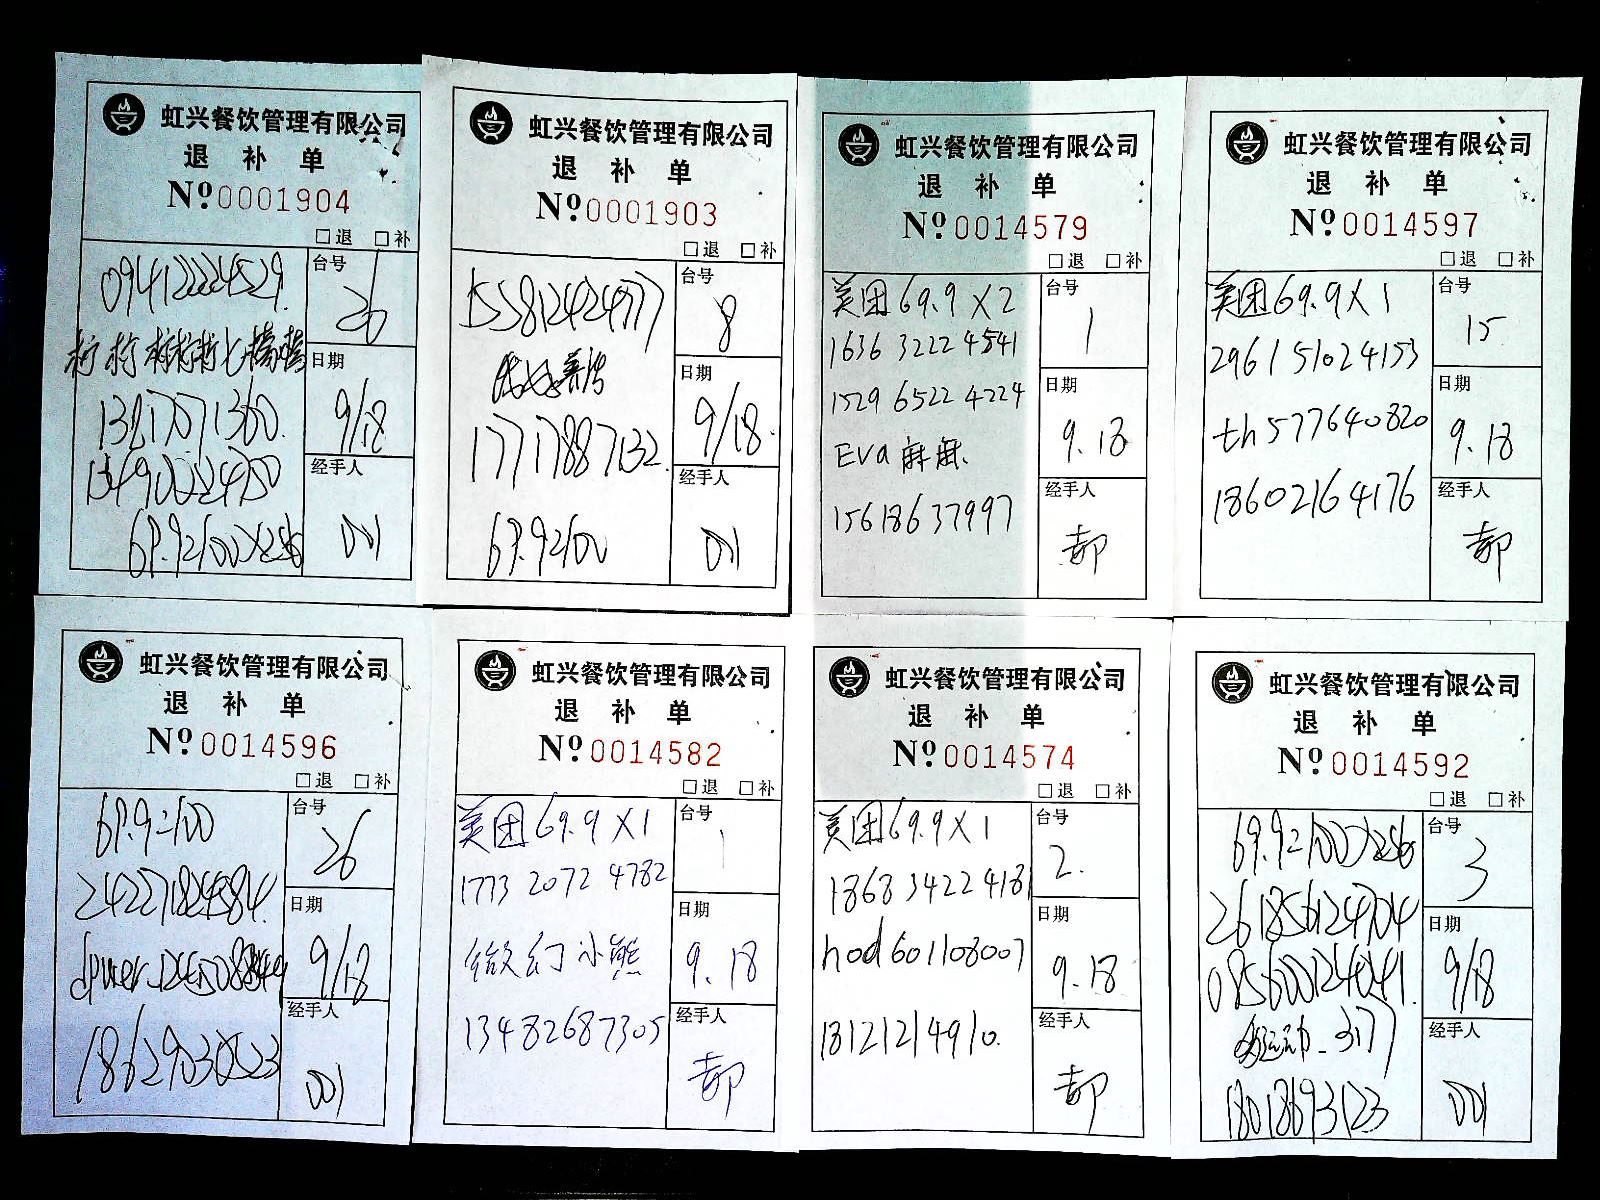 虹兴餐饮管理有限公司
退 补 单
Nº 0001904
□退 □补
094122224529
台号
26
日期
9/18
13817071360
经手人
001
虹兴餐饮管理有限公司
退 补 单
Nº 0001903
□退 □补
台号
8
日期
9/18
17717887132
69.9代100
经手人
001
虹兴餐饮管理有限公司
退 补 单
Nº 0014579
□退 □补
美团69.9X2
1636 3222 4541
1529 6522 4224
Eva麻麻
15618637997
台号
1
日期
9.18
经手人
郝
虹兴餐饮管理有限公司
退 补 单
Nº 0014597
□退 □补
美团69.9X1
296151024153
th577640820
18602164176
台号
15
日期
9.18
经手人
郝
虹兴餐饮管理有限公司
退 补 单
Nº 0014596
□退 □补
69.9代100
台号
26
日期
9/18
经手人
001
虹兴餐饮管理有限公司
退 补 单
Nº 0014582
□退 □补
美团69.9X1
1773 2072 4782
做幻小熊
13482687305
台号
1
日期
9.18
经手人
郝
虹兴餐饮管理有限公司
退 补 单
Nº 0014574
□退 □补
美团69.9X1
1868 3422 4181
hod601108007
18121214910
台号
2
日期
9.18
经手人
郝
虹兴餐饮管理有限公司
退 补 单
Nº 0014592
□退 □补
261856124704
085600124041
18018693123
台号
3
日期
9/18
经手人
001